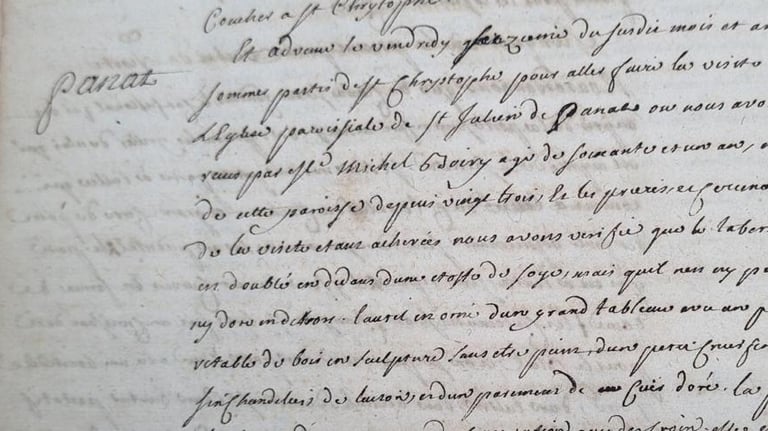 Coucher a st Chrystophe
Et advenu le vendredy quinzieme du susdit mois et an
Panat
sommes partis de st Chrystophe pour aller faire la visite
L'Eglise paroissiale de st Julien de Panat ou nous avo
receus par Mr. Michel agé de soixante et un an,
de cette paroisse depuis vingt trois, Et les prieres, et ceremo
de la visite etant achevées nous avons verifié que le taber
est doublé en dedans dune etoffe de soye, mais quil nest ny p
ny doré en dehors. lautel est orné dun grand tableau avec un
retable de bois en sculpture sans etre peint, dun petit crucifix
six Chandeliers de laiton, et dun parement de cuir doré. la